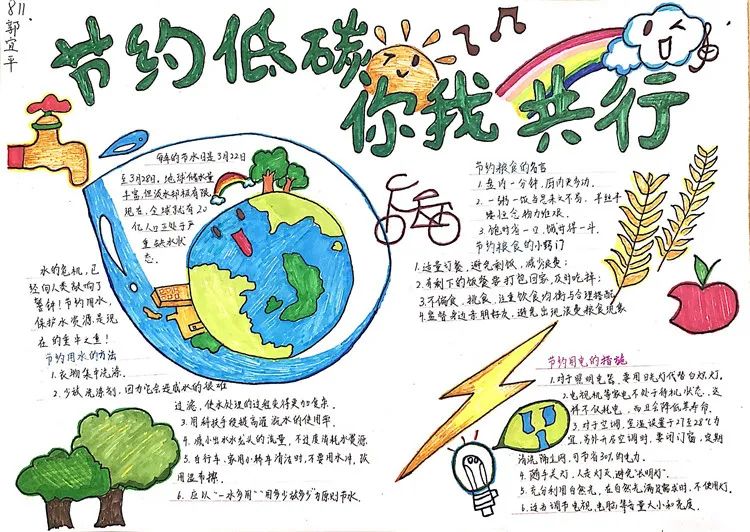 811.
郭宜平
节约低碳
你我共行
每年的节水日是3月22日
至3月28日,地球储水量
丰富,但淡水却极有限
现在,全球就有20
亿人口正处于严
重缺水状
态.
水的危机,已
经向人类敲响了
警钟!节约用水,
保护水资源是现
在的重中之重!
节约用水的方法
1.衣物集中洗涤.
2.少放洗涤剂,因为它会造成水的很难
过滤,使水处理的过程变得更加复杂.
3.用科技手段提高
水的使用率.
4.减小出水龙头的流量,不过度消耗水资源
5.自行车、家用小轿车清洁时,不要用水冲,改
用湿布擦.
6.应以“一水多用”“用多少放多少”为原则节水.
节约粮食的名言
1.盘内一分钟,田内
2.一粥一饭当思来之不易,半丝半
缕恒念物力维艰.
3.饱时省一口,饿时得一斗.
节约粮食的小窍门
1.适量订餐,避免剩饭,减少浪费;
2.有剩下的饭餐要打包回家,及时吃掉;
3.不偏食、挑食,注重饮食均衡与合理搭配
4.监督身边亲朋好友,避免出现浪费粮食现象
节约用电的措施
1.对于照明电器,要用日光灯代替白炽灯.
2.电视机等家电不处于待机状态,这
样不仅耗电,而且会降低其寿命.
3.对于空调,室温设置于27至28℃为
宜,另外开启空调时,要闭门窗,定期
清洗隔尘网,可节省30%的电力.
4.随手关灯,人走灯灭,避免“长明灯”.
5.充分利用自然光,在自然光满足需求时,不使用灯.
6.适当调节电视、电脑等音量大小和亮度.